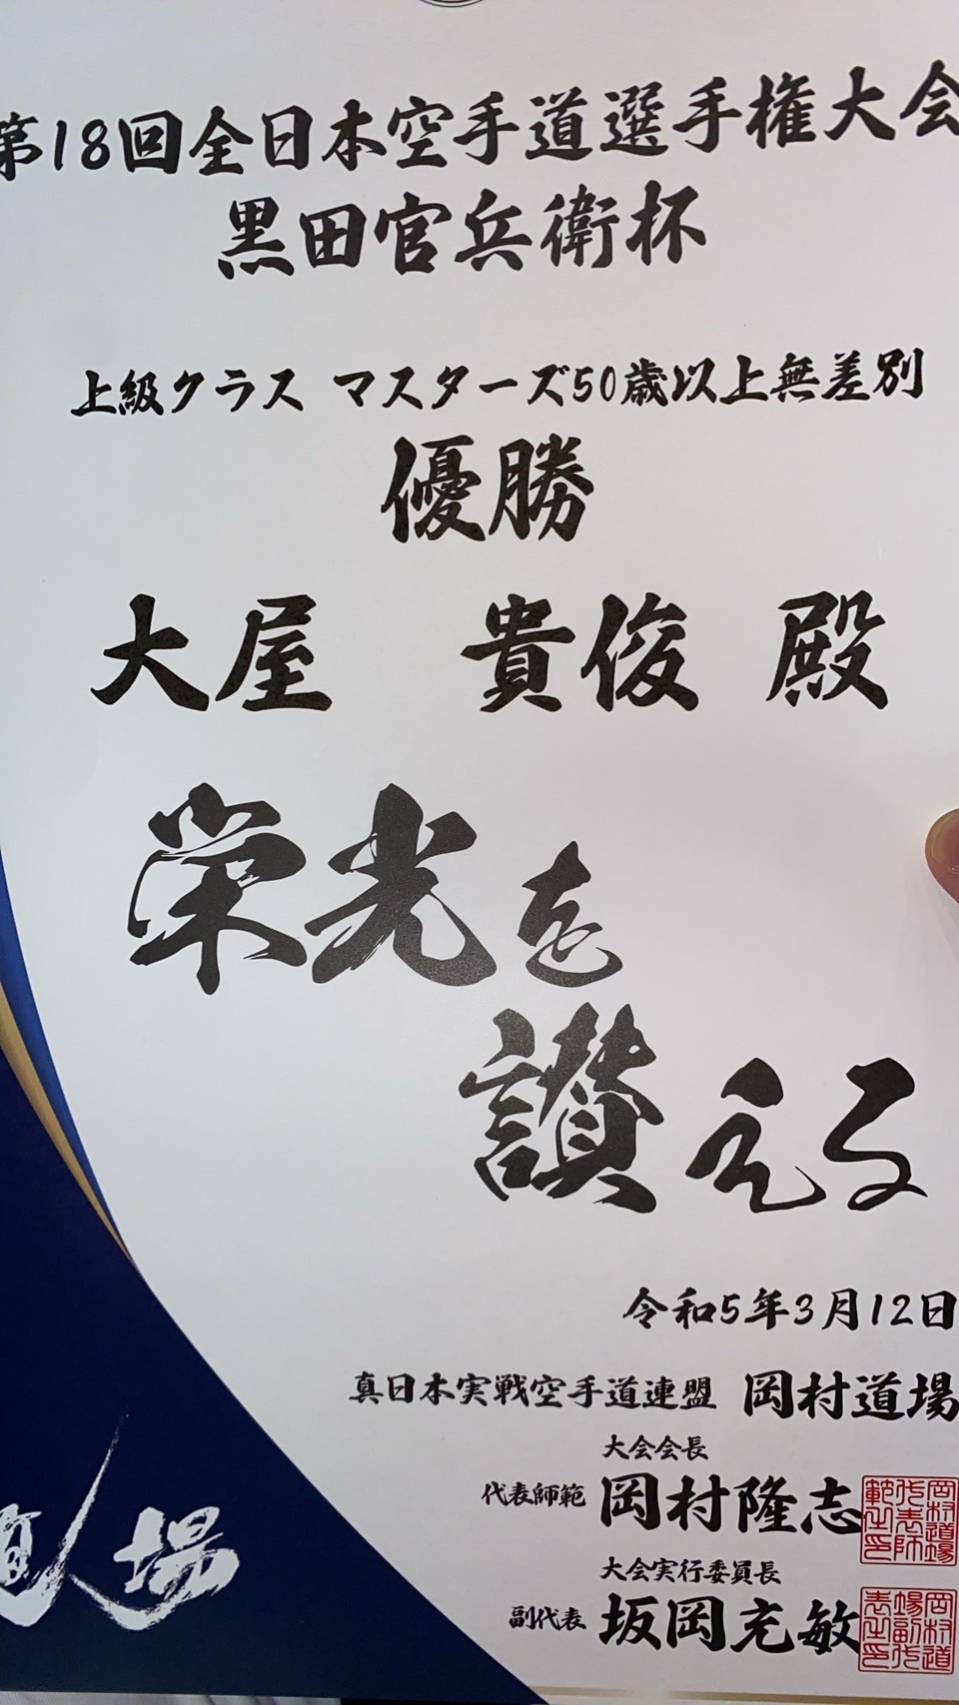 第18回全日本空手道選手権大会
黒田官兵衛杯
上級クラス マスターズ50歳以上無差別
優勝
大屋 貴俊 殿
栄光を
讃える
令和5年3月12日
真日本実戦空手道連盟 岡村道場
大会会長
代表師範 岡村隆志
岡村道場代表師範之印
大会実行委員長
副代表 坂岡充敏
岡村道場副代表之印
道場